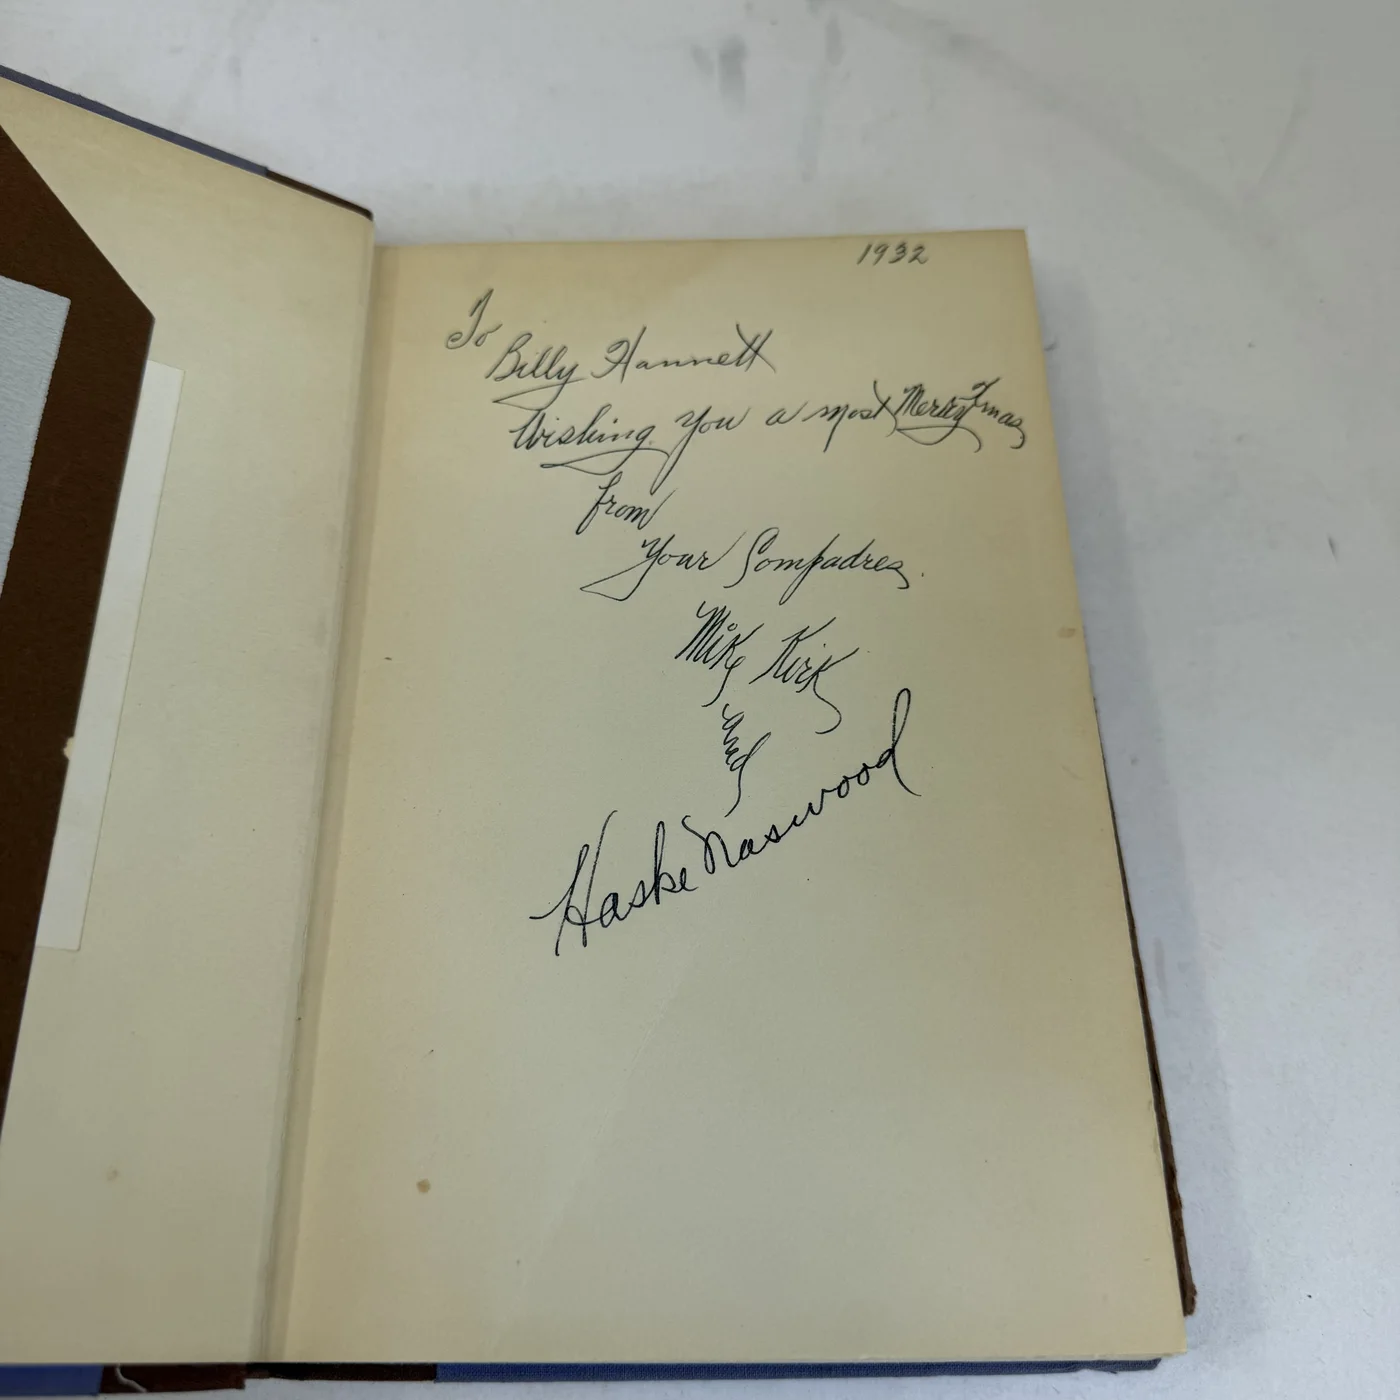 1932
To
Billy Hannett
Wishing You a most Merry Xmas
from
Your Compadres.
Mike Kirk
and
Haske Naswood